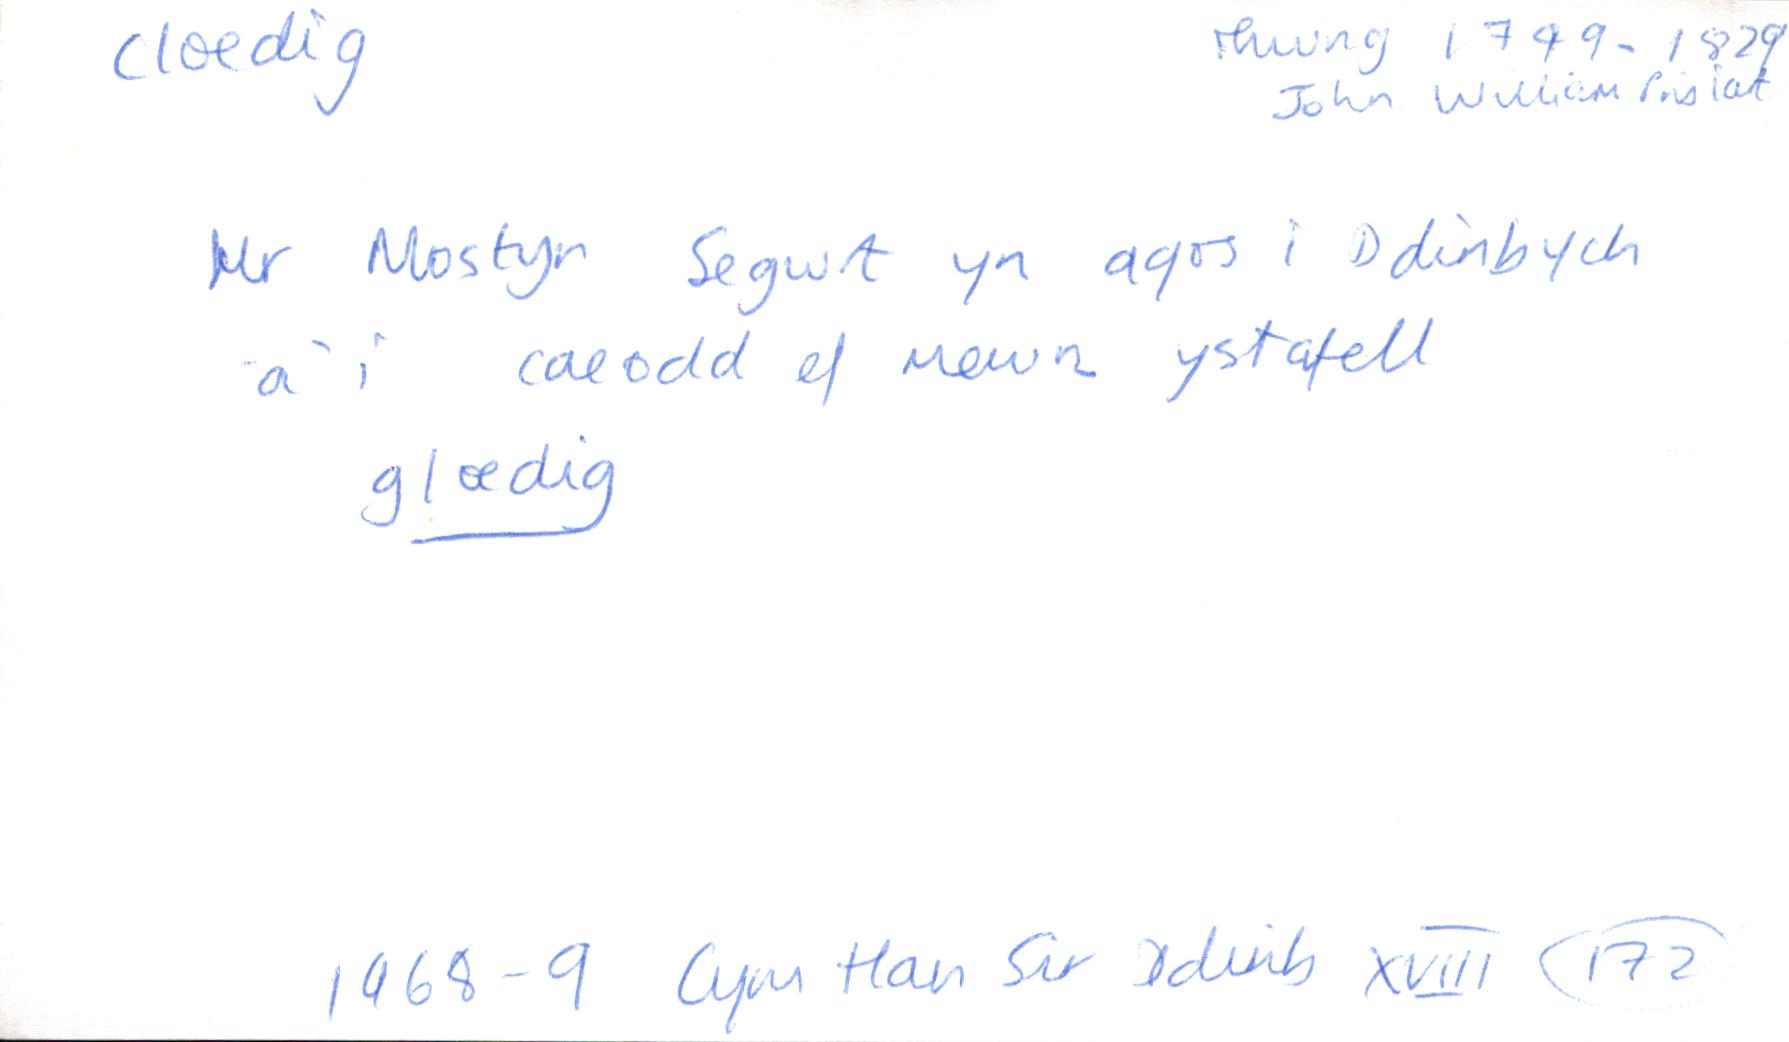 cloedig
rhwng 1749-1829
John William Prisiart
Mr Mostyn Segwrt yn agos i Ddinbych
a'i caeodd ef mewn ystafell
gloedig
1968-9 Cym Han Sir Ddinb XVIII 172